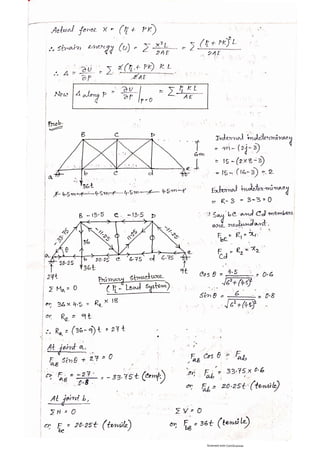 Actual force X = (η + PK)
∴ Strain energy (U) = Σ X²L / 2AE = Σ (η + PK)² L / 2AE
∴ Δ = ∂U / ∂P = Σ 2(η + PK) K L / 2AE
Now Δ along P = ∂U / ∂P | P=0 = Σ η K L / AE
Prob.
B C D
6m
a b c d e
36t
4.5m 4.5m 4.5m 4.5m
Internal indeterminacy
= m - (2j - 3)
= 15 - (2×8 - 3)
= 15 - (16 - 3) = 2
External indeterminacy
= R - 3 = 3 - 3 = 0
Say bC and Cd members
are redundant.
F bC = R₁ = X₁
F Cd = R₂ = X₂
B -13.5 C -13.5 D
-33.75 36 -11.25
θ
a 20.25 b 20.25 c 6.75 d 6.75 e
27t 36t 9t
Primary structure
(η - Load System)
Σ Ma = 0
or, 36×4.5 = Re × 18
or, Re = 9t
∴ Ra = (36-9) t = 27t
Cos θ = 4.5 / √6²+(4.5)² = 0.6
Sin θ = 6 / √6²+(4.5)² = 0.8
At joint a.
F aB Sin θ + 27 = 0
or, F aB = -27 / 0.8 = -33.75t (Comp.)
F aB Cos θ = F ab
or, F ab = 33.75 × 0.6
or, F ab = 20.25t (tensile)
At joint b.
Σ H = 0
or, F bc = 20.25t (tensile)
Σ V = 0
or, F bB = 36t (tensile)
Scanned with CamScanner